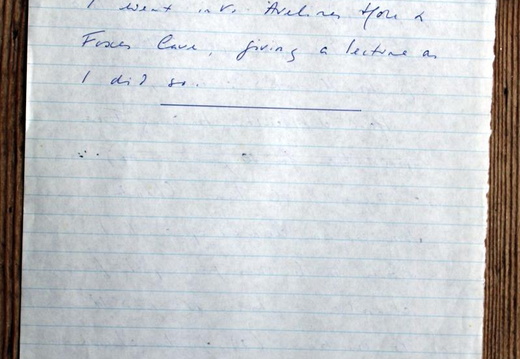 I went into Avelines Hole &
Foxes Cave, giving a lecture as
I did so.